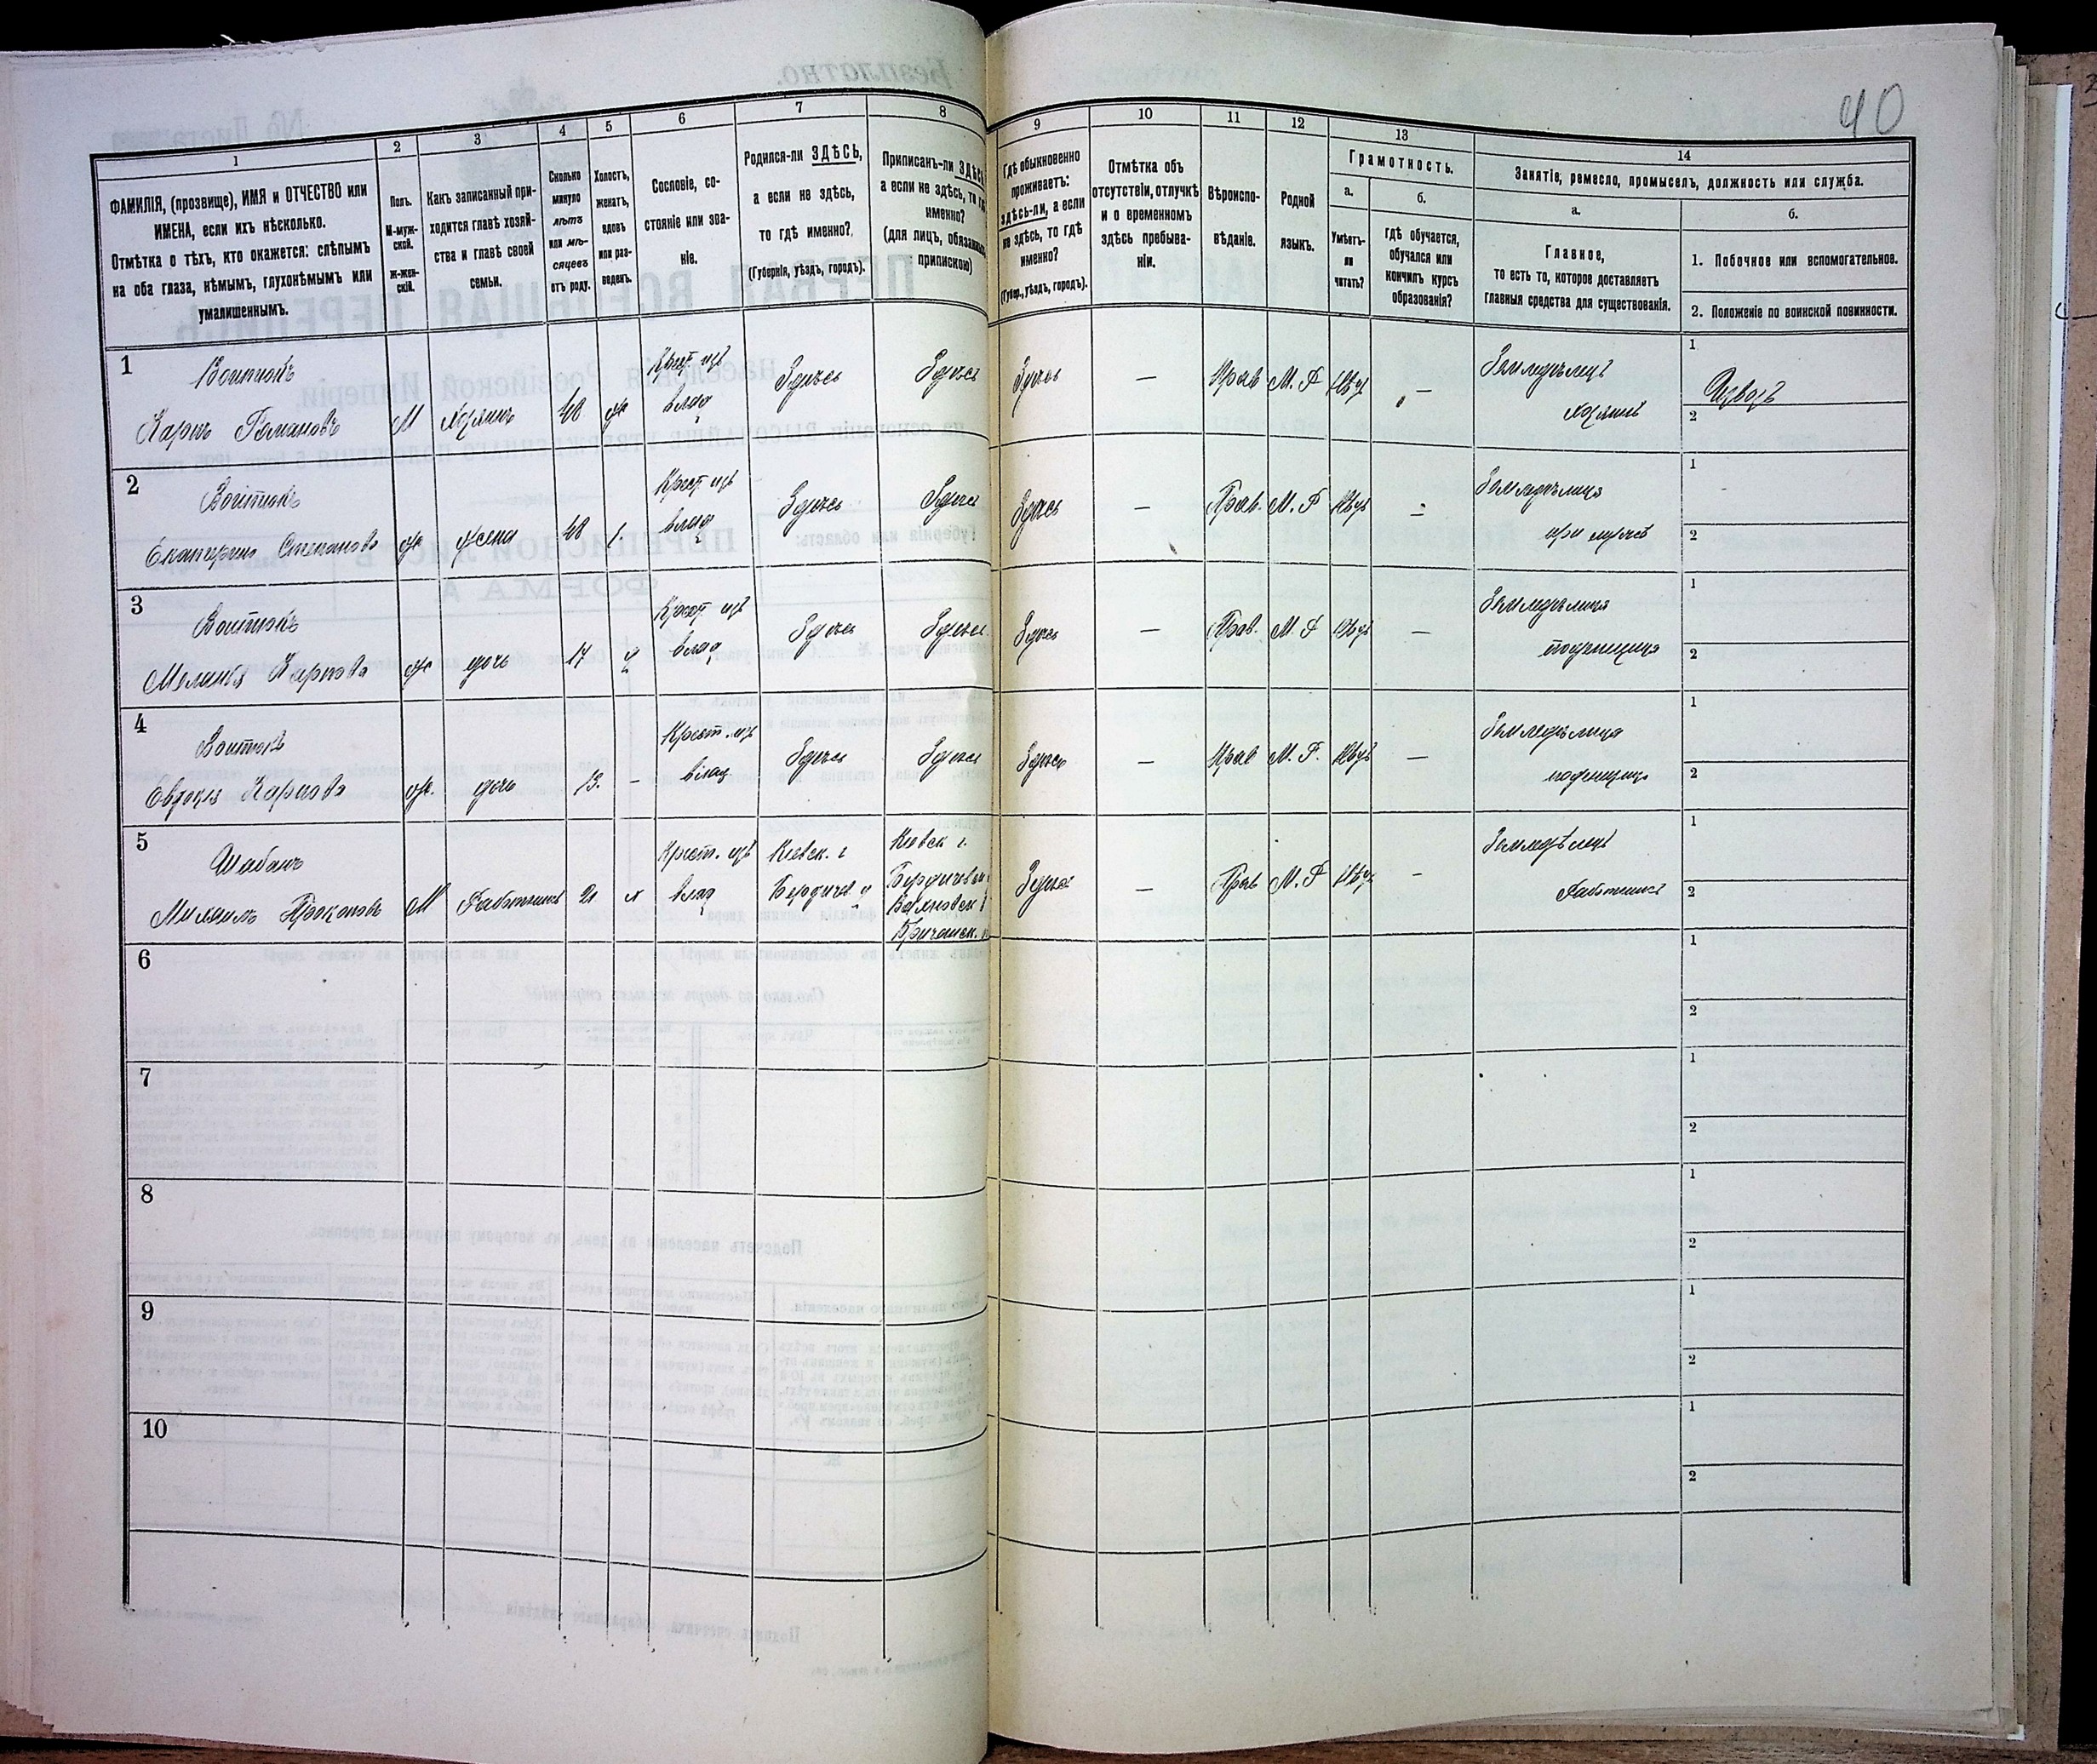 40
1
2
3
4
5
6
7
8
9
10
11
12
13
14
ФАМИЛІЯ, (прозвище), ИМЯ и ОТЧЕСТВО или
ИМЕНА, если ихъ нѣсколько.
Отмѣтка о тѣхъ, кто окажется: слѣпымъ
на оба глаза, нѣмымъ, глухонѣмымъ или
умалишеннымъ.
Полъ.
М-муж-
ской.
Ж-жен-
скій.
Какъ записанный при-
ходится главѣ хозяй-
ства и главѣ своей
семьи.
Сколько
минуло
лѣтъ
или мѣ-
сяцевъ
отъ роду.
Холостъ,
женатъ,
вдовъ
или раз-
веденъ.
Сословіе, со-
стояніе или зва-
ніе.
Родился-ли ЗДѢСЬ,
а если не здѣсь,
то гдѣ именно?
(Губернія, уѣздъ, городъ).
Приписанъ-ли ЗДѢСЬ,
а если не здѣсь, то гдѣ
именно?
(для лицъ, обязанныхъ
припискою)
Гдѣ обыкновенно
проживаетъ:
здѣсь-ли, а если
не здѣсь, то гдѣ
именно?
(Губер., уѣздъ, городъ).
Отмѣтка объ
отсутствіи, отлучкѣ
и о временномъ
здѣсь пребыва-
ніи.
Вѣроиспо-
вѣданіе.
Родной
языкъ.
Грамотность.
а.
Умѣетъ-
ли
читать?
б.
гдѣ обучается,
обучался или
кончилъ курсъ
образованія?
Занятіе, ремесло, промыселъ, должность или служба.
а.
Главное,
то есть то, которое доставляетъ
главныя средства для существованія.
б.
1. Побочное или вспомогательное.
2. Положеніе по воинской повинности.
1
Воитюкъ
Карпъ Романовъ
М
Хозяинъ
48
ж
Крест. изъ
влад
Здѣсь
Здѣсь
Здѣсь
—
Прав
М. Р
—
Земледѣлецъ
хозяинъ
1
Извозъ
2
2
Воитюкъ
Екатерина Степанова
ж
жена
48
Крест. изъ
влад
Здѣсь
Здѣсь
Здѣсь
—
Прав.
М. Р
—
Земледѣлица
при мужѣ
1
2
3
Воитюкъ
Меланія Карпова
ж
дочь
17
Крест. изъ
влад
Здѣсь
Здѣсь
Здѣсь
—
Прав.
М. Р
—
Земледѣлица
1
2
4
Воитюкъ
Евдокія Карпова
ж.
дочь
13.
–
Крест. изъ
влад
Здѣсь
Здѣсь
Здѣсь
—
Прав
М. Р.
—
Земледѣлица
1
2
5
Шабанъ
Михаилъ Прокоповъ
М
Работникъ
21
х
Крест. изъ
влад
Кіевск. г
Бердичев. у
Кіевск г.
Бердичевск
Здѣсь
—
Прав
М. Р
–
Земледѣлецъ
Работникъ
1
2
6
1
2
7
1
2
8
1
2
9
1
2
10
1
2